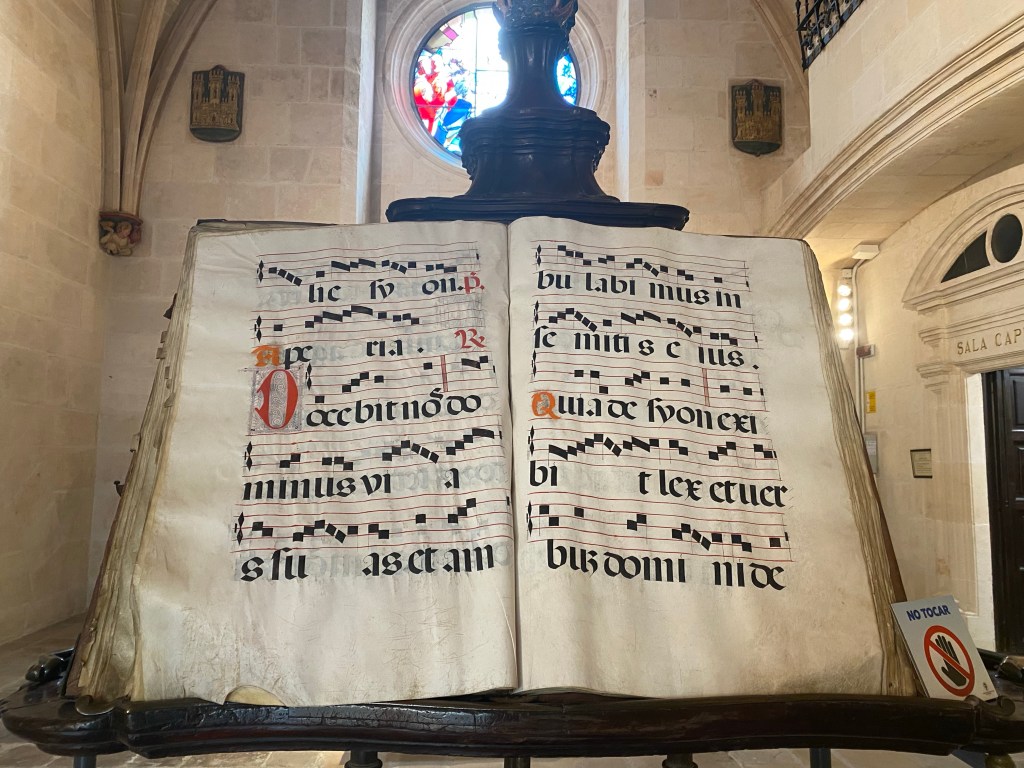 lic sy on. p̄.
Ape ria. R
Docebit nos do
minus vi a
s su as et am
bu labi mus in
se miti s e ius.
Quia de syon exi
bi t lex et ver
buz domi ni de
SALA CAP
NO TOCAR